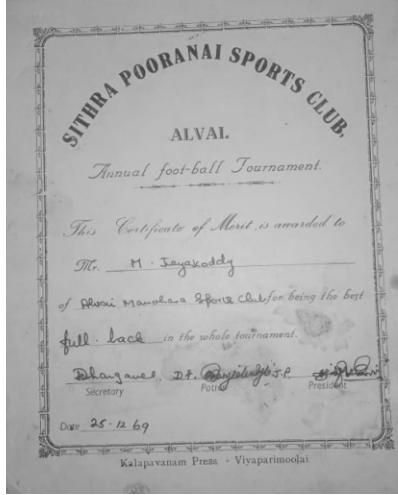 SITHRA POORANAI SPORTS CLUB,
ALVAI.
Annual foot-ball Tournament.
This Certificate of Merit, is awarded to
Mr. M. Jeyakoddy
of Alvai Manohara Sports Club for being the best
full-back in the whole tournament.
J.P
Secretary Patron President
Date 25-12-69
Kalapavanam Press - Viyaparimoolai